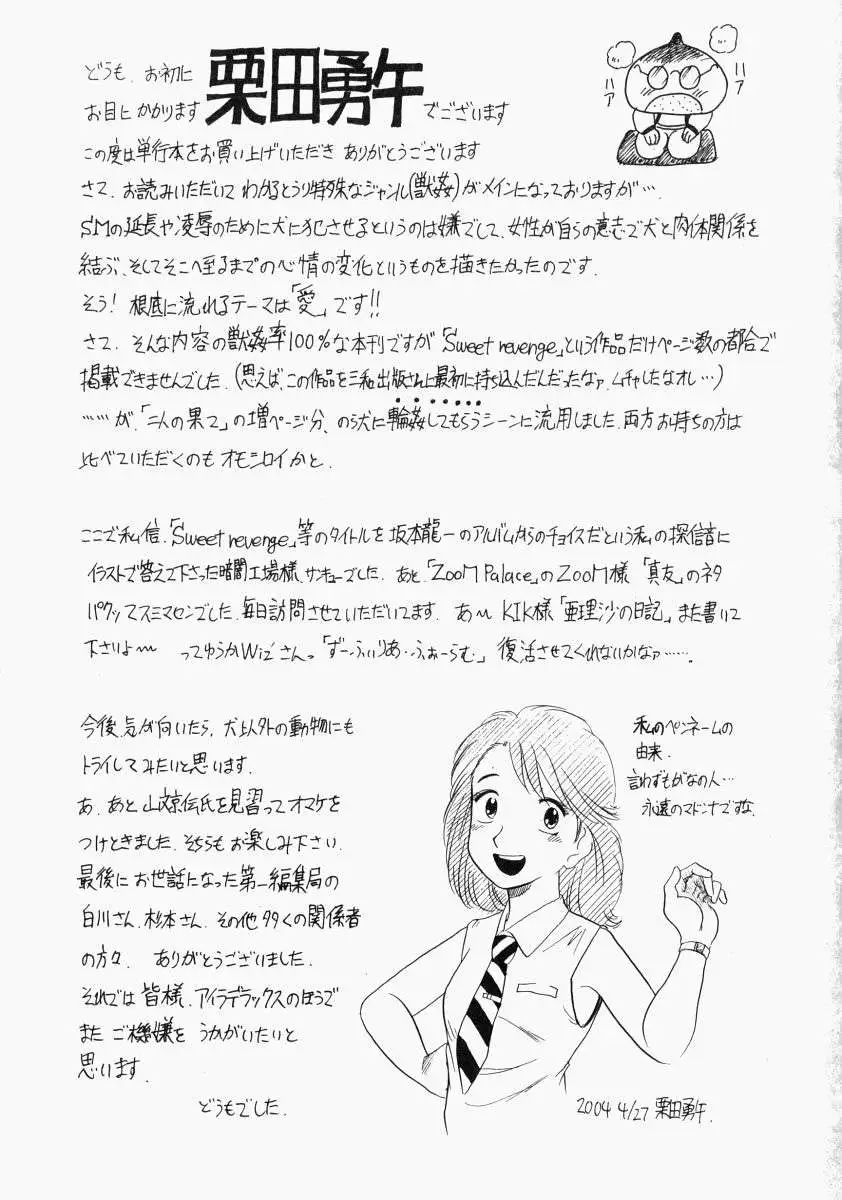 どうも、お初に
お目にかかります 栗田勇午 でございます
ハア
ハア
この度は単行本をお買い上げいただき ありがとうございます
さて、お読みいただいて わかるとうり特殊なジャンル(獣姦)がメインになっておりますが…、
SMの延長や凌辱のために犬に犯させるというのは嫌でして、女性が自らの意志で犬と肉体関係を
結ぶ、そしてそこへ至るまでの心情の変化というものを描きたかったのです。
そう! 根底に流れるテーマは「愛」です!!
さて、そんな内容の獣姦率100%な本刊ですが「Sweet revenge」という作品だけページ数の都合で
掲載できませんでした。(思えば、この作品を三和出版さんに最初に持ち込んだんだったなァ、ムチャしたなオレ…)
……が、「二人の果て」の増ページ分、のら犬に輪姦してもらうシーンに流用しました。両方お持ちの方は
比べていただくのもオモシロイかと。
ここで私信、「Sweet revenge」等のタイトルを坂本龍一のアルバムからのチョイスだという私の探信音に
イラストで答えて下さった暗闇工場様、サンキューでした。あと、「ZooM Palace」のZooM様 「真友」のネタ
パクッてスミマセンでした、毎日訪問させていただいてます。 あ〜 KIK様「亜理沙の日記」また書いて
下さいよ〜 ってゆうかWiz'さんっ「ずーふぃりあ・ふぉーらむ」 復活させてくれないかなァ……。
今後、気が向いたら、犬以外の動物にも
トライしてみたいと思います。
あ、あと 山文京伝氏を見習ってオマケを
つけときました。そちらもお楽しみ下さい。
最後に お世話になった第一編集局の
白川さん、杉本さん、その他多くの関係者
の方々、 ありがとうございました。
それでは 皆様、アイラデラックスのほうで
また ご機嫌を うかがいたいと
思います。
どうもでした。
私のペンネームの
由来、
言わずもがなの人…
永遠のマドンナですな。
2004 4/27 栗田勇午.